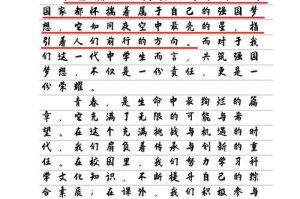 国家都怀揣着属于自己的强国梦
想，它如同夜空中最亮的星，指
引着人们前行的方向。而对于我
们这一代中学生而言，共筑强国
梦想，不仅是一份责任，更是一
份荣耀。
青春，是生命中最绚烂的篇
章，它充满了无限的可能与希
望。在这个充满挑战与机遇的时
代，我们肩负着传承与创新的重
任。在校园里，我们努力学习科
学文化知识，不断提升自己的综
合素质；在课外，我们积极参与